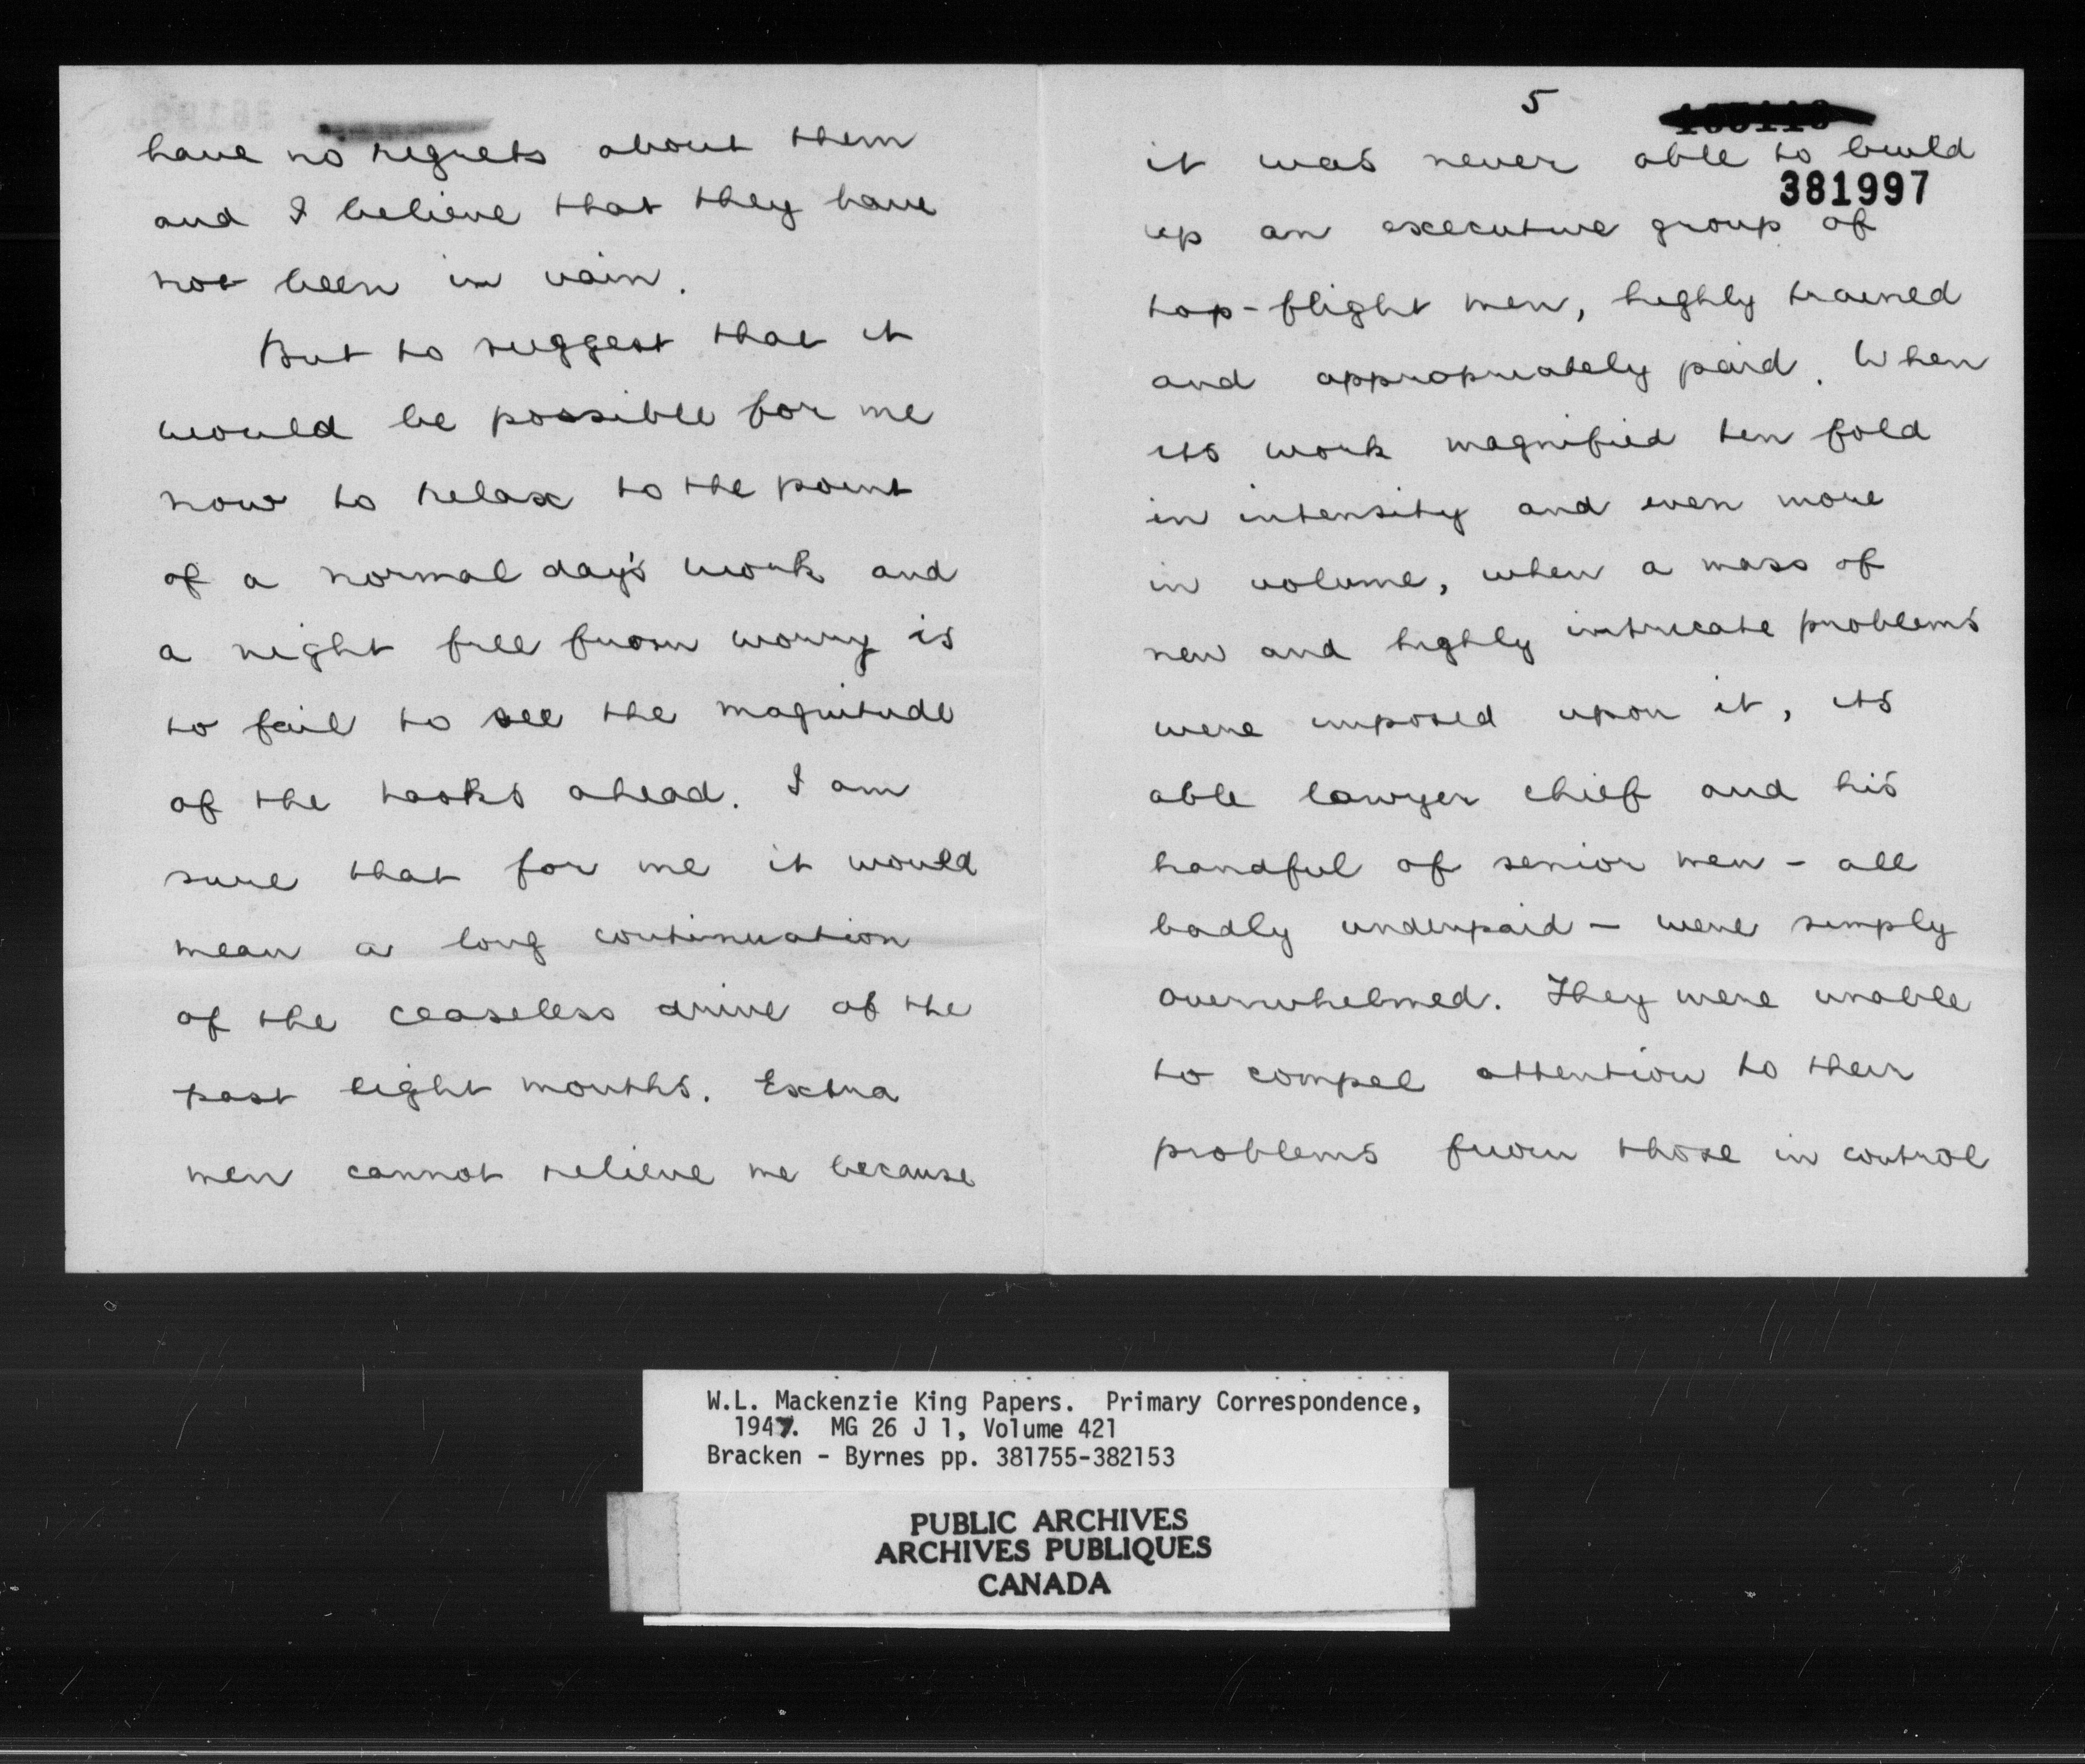 have no regrets about them
and I believe that they have
not been in vain.
But to suggest that it
would be possible for me
now to relax to the point
of a normal day's work and
a night free from worry is
to fail to see the magnitude
of the tasks ahead. I am
sure that for me it would
mean a long continuation
of the ceaseless drive of the
past eight months. Extra
men cannot relieve me because
5
it was never able to build
381997
up an executive group of
top-flight men, highly trained
and appropriately paid. When
its work magnified ten fold
in intensity and even more
in volume, when a mass of
new and highly intricate problems
were imposed upon it, its
able lawyer chief and his
handful of senior men - all
badly underpaid - were simply
overwhelmed. They were unable
to compel attention to their
problems from those in control
W.L. Mackenzie King Papers. Primary Correspondence,
1947. MG 26 J 1, Volume 421
Bracken - Byrnes pp. 381755-382153
PUBLIC ARCHIVES
ARCHIVES PUBLIQUES
CANADA